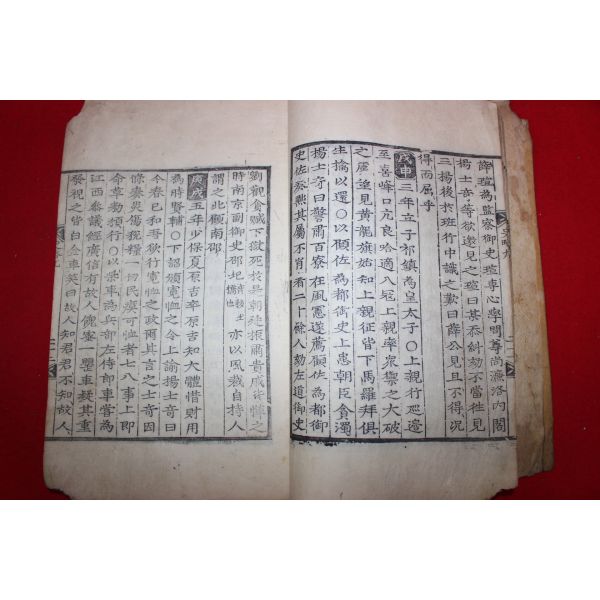 薛瑄爲監察御史瑄專心學問尊尚濂洛內閣
楊士奇等欲遂見之瑄曰某忝糾劾不當徃見
三楊後於班行中識之歎曰薛公見且不得况
得而屈乎
戊申 三年立子祁鎭爲皇太子○上親行廵邊
至喜峰口兀良哈適入冠上親率衆禦之大破
之虜望見黃龍旗始知上親征皆下馬羅拜俱
生擒以還○以顧佐爲都御史上患朝臣貪濁
楊士奇曰警肅百寮在風憲遂薦顧佐爲都御
史佐叅黜其屬不肖者二十餘人劾左道御史
劉觀貪贓下獄死於是朝廷振肅貴戚皆憚之
時南京副御史邵玘亦以風裁自持人
謂之北顧南邵
庚戌 五年少保夏原吉卒原吉知大體惜財用
爲時賢輔○下詔頒寬恤之令上諭楊士奇曰
今春已和吾欲行寬恤之政爾其言之士奇因
條奏災傷稅粮一切民瘼可恤者七八事上卽
命草勑頒行○以柴車爲兵部左侍郞車嘗爲
江西叅議經廣信有故人僞寮一甖車疑其重
發視之皆白金車笑曰故人知君君不知故人